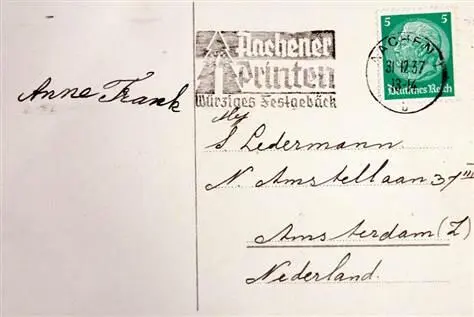 Aachener
Printen
Würziges Festgebäck
5 5
AACHEN
31.12.37
Deutsches Reich
Anne Frank
S Ledermann
N. Amstellaan 37 III
Amsterdam (Z)
Nederland.